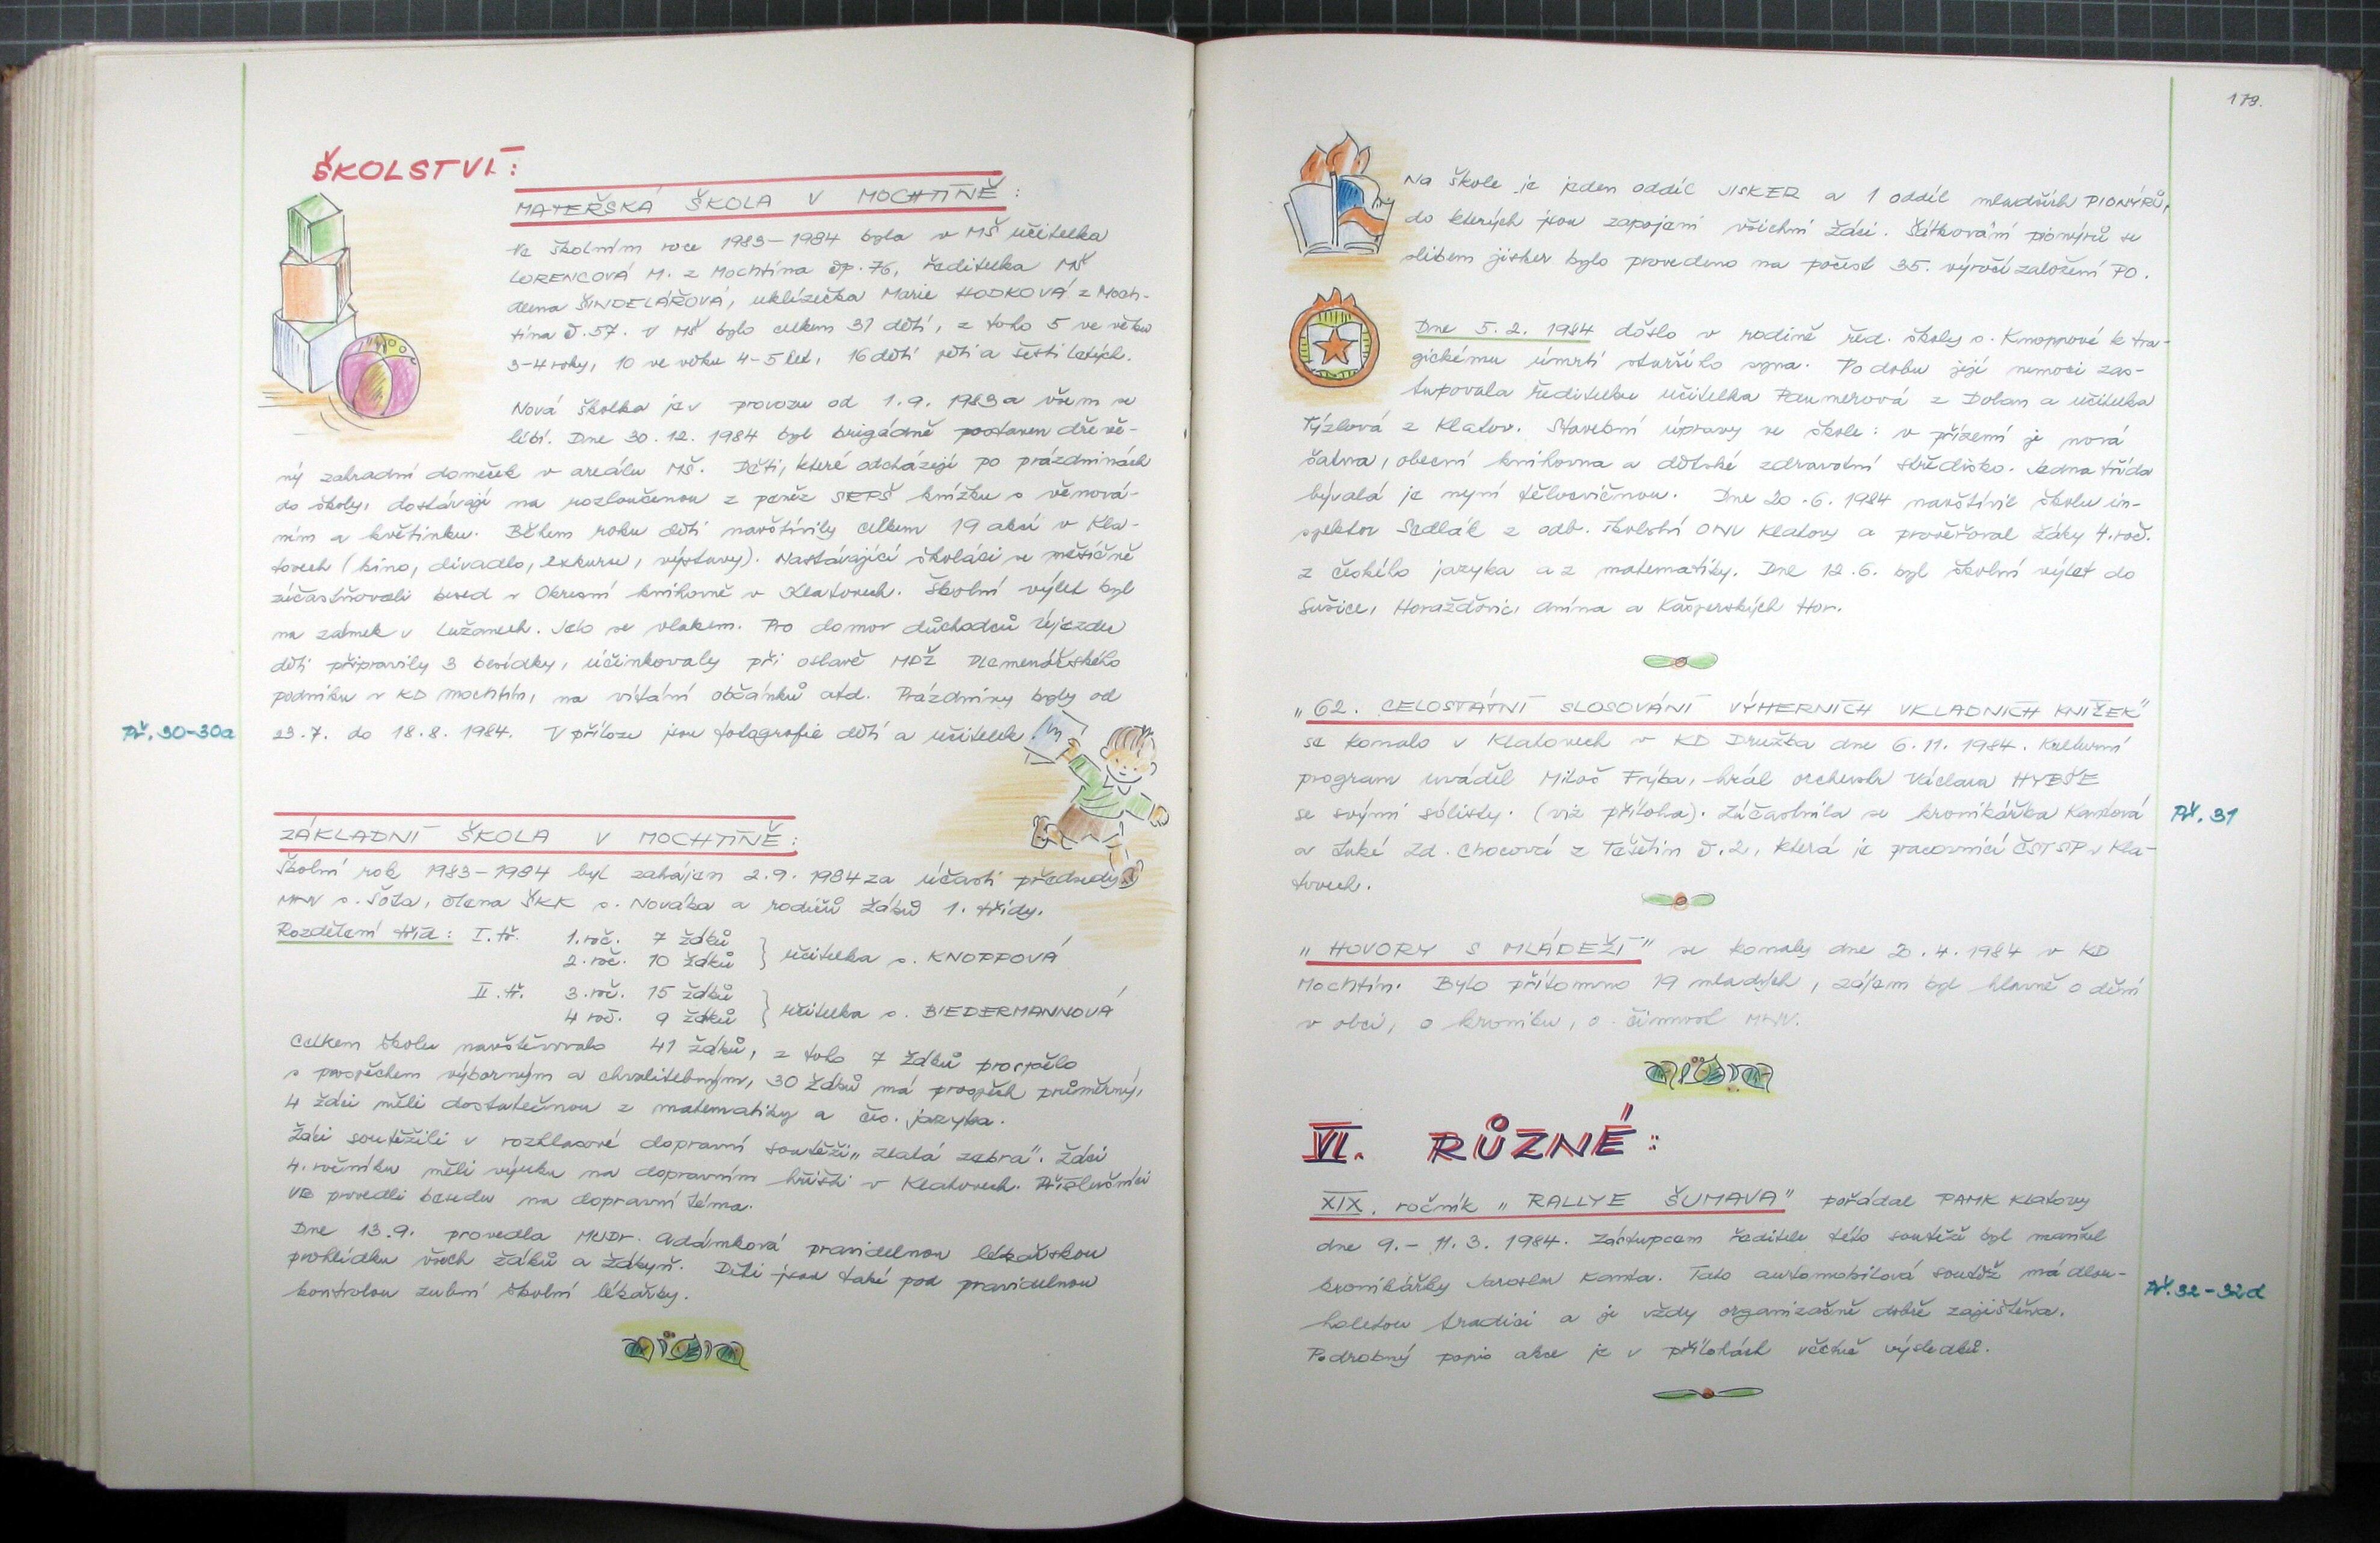 ŠKOLSTVÍ:
MATEŘSKÁ ŠKOLA V MOCHTÍNĚ:
Ve školním roce 1983-1984 byla v MŠ učitelka
LORENCOVÁ M. z Mochtína čp. 76, ředitelka MŠ
Alena ŠINDELÁŘOVÁ, uklízečka Marie HODKOVÁ z Moch-
tína č. 57. V MŠ bylo celkem 31 dětí, z toho 5 ve věku
3-4 roky, 10 ve věku 4-5 let, 16 dětí pěti a šesti letých.
Nová školka je v provozu od 1.9. 1983 a všem se
líbí. Dne 30.12. 1984 byl brigádně postaven dřevě-
ný zahradní domeček v areálu MŠ. Děti, které odcházejí po prázdninách
do školy, dostávají na rozloučenou z peněz SRPŠ knížku s věnová-
ním a květinku. Během roku děti navštívily celkem 19 akcí v Kla-
tovech (kino, divadlo, exkurse, výstavy). Nastávající školáci se měsíčně
zúčastňovali besed v Okresní knihovně v Klatovech. Školní výlet byl
na zámek v Lužanech. Jelo se vlakem. Pro domov důchodců Újezdu
děti připravily 3 besídky, účinkovaly při oslavě MDŽ Plemenářského
podniku v KD Mochtín, na vítání občánků atd. Prázdniny byly od
Př. 30-30a 23.7. do 18.8. 1984. V příloze jsou fotografie dětí a učitelek.
ZÁKLADNÍ ŠKOLA V MOCHTÍNĚ:
Školní rok 1983-1984 byl zahájen 2.9. 1984 za účasti předsedy
MNV s. Šota, člena ŠKK s. Nováka a rodičů žáků 1. třídy.
Rozdělení tříd: I. tř. 1. roč. 7 žáků
2. roč. 10 žáků } učitelka s. KNOPPOVÁ
II. tř. 3. roč. 15 žáků
4 roč. 9 žáků } učitelka s. BIEDERMANNOVÁ
Celkem školu navštěvovalo 41 žáků, z toho 7 žáků prospělo
s prospěchem výborným a chvalitebným, 30 žáků má prospěch průměrný,
4 žáci měli dostatečnou z matematiky a čes. jazyka.
Žáci soutěžili v rozhlasové dopravní soutěži „Zlatá zebra". Žáci
4. ročníku měli výuku na dopravním hřišti v Klatovech. Příslušníci
VB provedli besedu na dopravní téma.
Dne 13.9. provedla MUDr. Adámková pravidelnou lékařskou
prohlídku všech žáků a žákyň. Děti jsou také pod pravidelnou
kontrolou zubní školní lékařky.
179.
Na škole je jeden oddíl JISKER a 1 oddíl mladších PIONÝRŮ,
do kterých jsou zapojeni všichni žáci. Šátkování pionýrů se
slibem jisker bylo provedeno na počest 35. výročí založení PO.
Dne 5.2. 1984 došlo v rodině řed. školy s. Knoppové k tra-
gickému úmrtí staršího syna. Po dobu její nemoci zas-
tupovala ředitelku učitelka Paumerová z Dolan a učitelka
Týzlová z Klatov. Stavební úpravy ve škole: v přízemí je nová
šatna, obecní knihovna a dětské zdravotní středisko. Jedna třída
bývalá je nyní tělocvičnou. Dne 20.6. 1984 navštívil školu in-
spektor Sedlák z odb. školství ONV Klatovy a prověřoval žáky 4. roč.
z českého jazyka a z matematiky. Dne 12.6. byl školní výlet do
Sušice, Horažďovic, Anína a Kašperských Hor.
„62. CELOSTÁTNÍ SLOSOVÁNÍ VÝHERNÍCH VKLADNÍCH KNÍŽEK"
se konalo v Klatovech v KD Družba dne 6.11. 1984. Kulturní
program uváděl Miloš Frýba, hrál orchestr Václava HYBŠE
se svými sólisty. (viz příloha). Zúčastnila se kronikářka Kantová Př. 31
a také Zd. Chocová z Těšetin č. 2, která je pracovnicí ČSTSP v Kla-
tovech.
„HOVORY S MLÁDEŽÍ" se konaly dne 20.4. 1984 v KD
Mochtín. Bylo přítomno 19 mladých, zájem byl hlavně o dění
v obci, o kroniku, o činnost MNV.
VI. RŮZNÉ:
XIX. ročník „RALLYE ŠUMAVA" pořádal PAMK Klatovy
dne 9.-11.3. 1984. Zástupcem ředitele této soutěže byl manžel
kronikářky Jaroslav Kanta. Tato automobilová soutěž má dlou-
holetou tradici a je vždy organizačně dobře zajištěna. Př. 32-32d
Podrobný popis akce je v přílohách včetně výsledků.